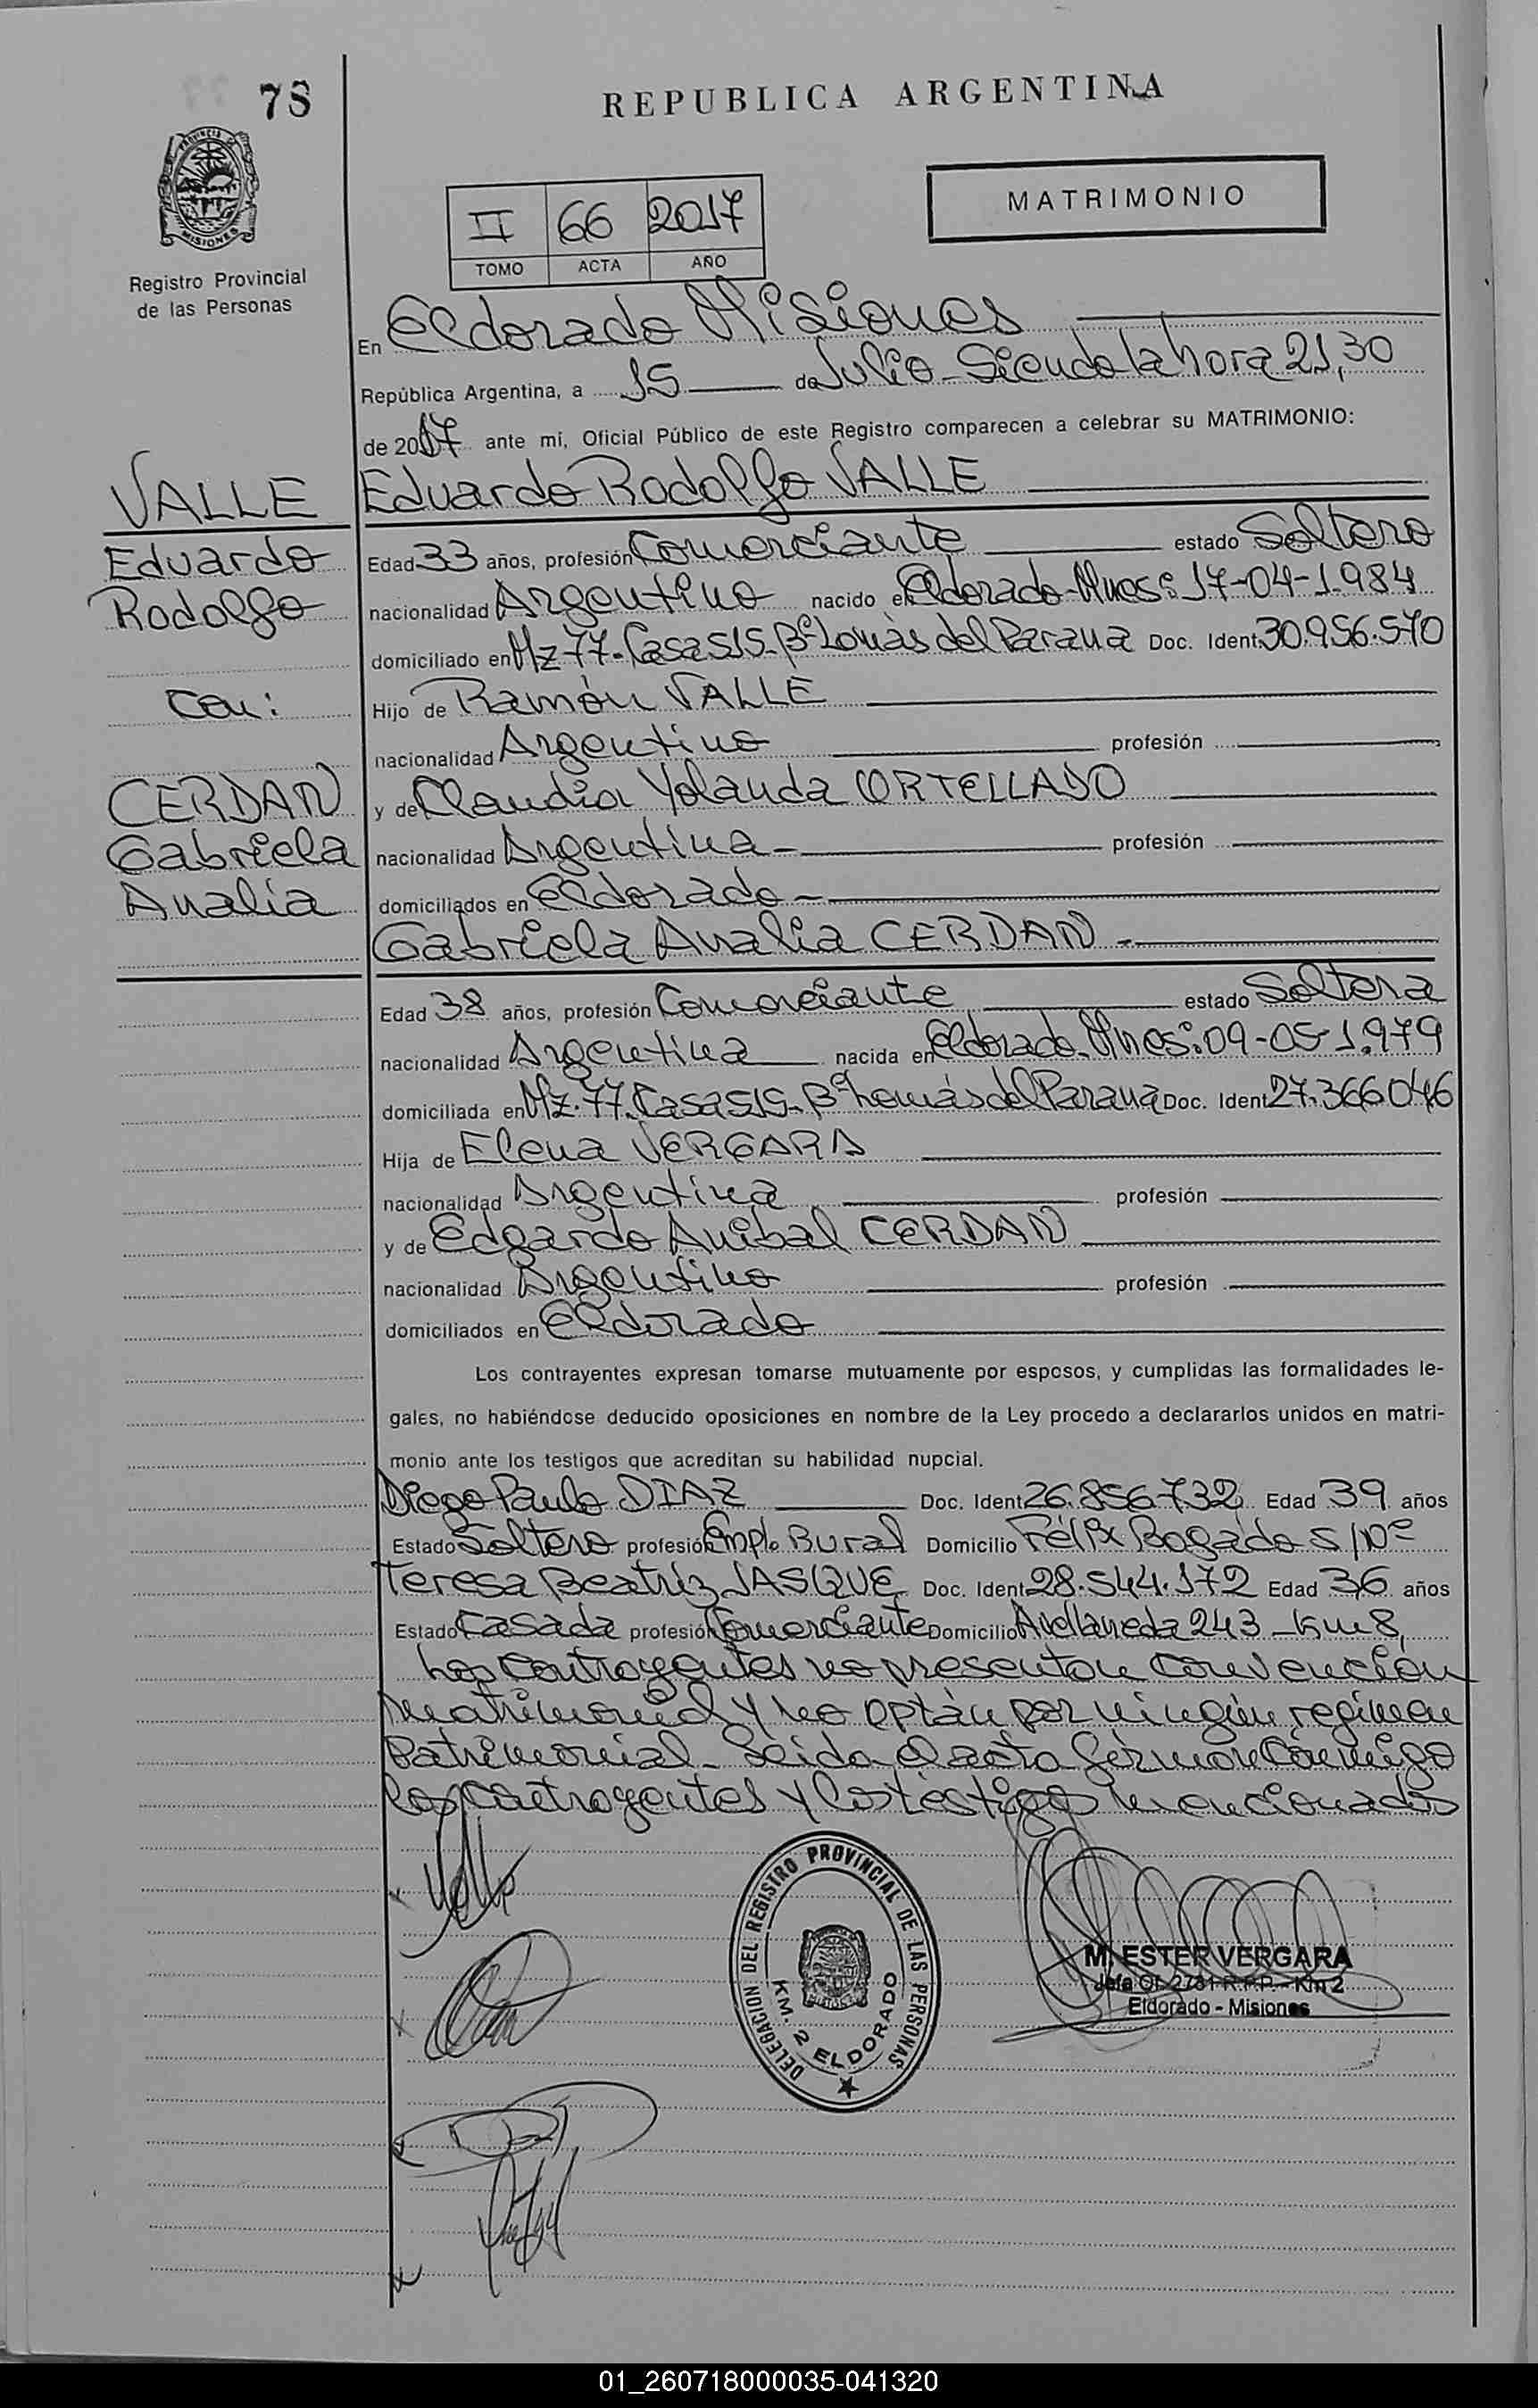 78
REPUBLICA ARGENTINA
MISIONES
Registro Provincial
de las Personas
II 66 2017
TOMO ACTA AÑO
MATRIMONIO
En Eldorado Misiones
República Argentina, a 15 de Julio - Siendo la hora 21,30
de 2017 ante mí, Oficial Público de este Registro comparecen a celebrar su MATRIMONIO:
VALLE
Eduardo
Rodolfo
Con:
CERDAN
Gabriela
Analia
Eduardo Rodolfo VALLE
Edad 33 años, profesión Comerciante estado Soltero
nacionalidad Argentino nacido en Eldorado-Mnes: 17-04-1.984
domiciliado en Mz 77-Casa S15-Bº Lomas del Parana Doc. Ident. 30.956.570
Hijo de Ramón VALLE
nacionalidad Argentino profesión
y de Claudia Yolanda ORTELLADO
nacionalidad Argentina - profesión
domiciliados en Eldorado -
Gabriela Analia CERDAN -
Edad 38 años, profesión Comerciante estado Soltera
nacionalidad Argentina nacida en Eldorado-Mnes: 09-05-1.979
domiciliada en Mz. 77-Casa S15-Bº Lomas del Parana Doc. Ident 27.366046
Hija de Elena VERGARA
nacionalidad Argentina profesión
y de Edgardo Anibal CERDAN
nacionalidad Argentino profesión
domiciliados en Eldorado
Los contrayentes expresan tomarse mutuamente por esposos, y cumplidas las formalidades le-
gales, no habiéndose deducido oposiciones en nombre de la Ley procedo a declararlos unidos en matri-
monio ante los testigos que acreditan su habilidad nupcial.
Diego Paulo DIAZ Doc. Ident 26.856.732 Edad 39 años
Estado Soltero profesión Empl. Rural Domicilio Félix Bogado S/Nº
Teresa Beatriz JASQUE Doc. Ident 28.544.172 Edad 36 años
Estado Casada profesión Comerciante Domicilio Avellaneda 243 - Km 8,
Los Contrayentes no presentan Convención
Matrimonial y no optán por ningún regimen
Patrimonial - Leida el acta firman Conmigo
los contrayentes y los testigos mencionados
DELEGACION DEL REGISTRO PROVINCIAL DE LAS PERSONAS
KM. 2 ELDORADO
M. ESTER VERGARA
Jefa Of. 2781 R.P.P. - Km 2
Eldorado - Misiones
01_260718000035-041320